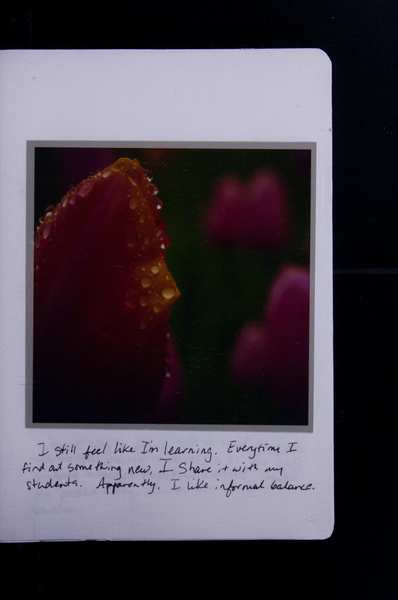 I still feel like I'm learning. Everytime I
find out something new, I share it with my
students. Apparently, I like informal balance.